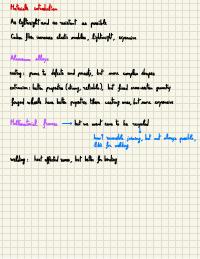 Materials introduction
As lightweight and as resistant as possible
Carbon fibre increases elastic modulus, lightweight, expensive
Aluminum alloys
casting: prone to defects and porosity, but more complex shapes
extrusion: better properties (strong, reliable), but fixed cross-section geometry
forged wheels have better properties than casting ones, but more expensive
Multimaterial frames → but we want cars to be recycled
hard reversible joining, but not always possible,
like for welding
welding: heat affected zones, but better for bonding